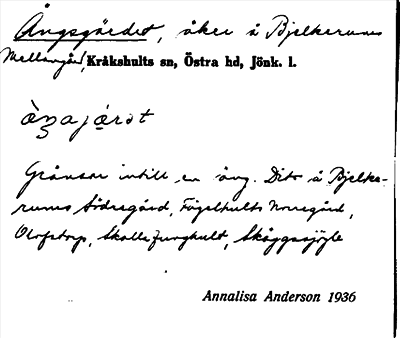 Ängsgärdet, åker å Bjelkerums
Mellangård, Kråkshults sn, Östra hd, Jönk. l.
Gränsar intill en äng. Dito å Bjelke-
rums Södregård, Fågelhults Norregård,
Olofstorp, Skallefurghult,
Annalisa Anderson 1936